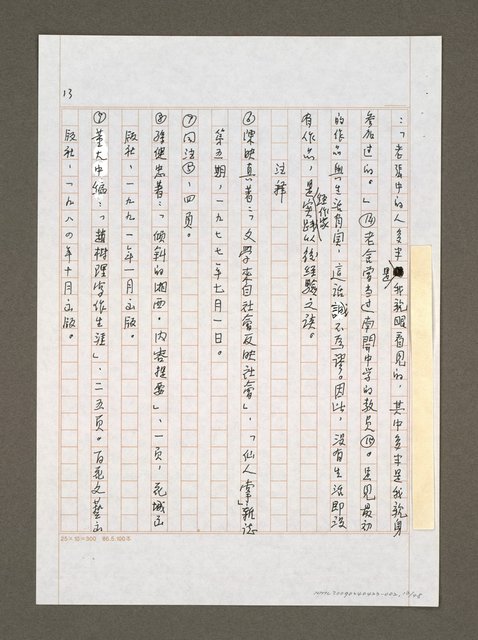 13
:「老張中的人多半是我親眼看見的,其中多半是我親身
參加過的。」⑭老舍曾當過南開中學的教員⑮。岂見最初
的作品與生活有関,這話誠不為謬。因此,没有生活即没
有作品,是作家實踐以後經驗之談。
註釋
⑥陳映真著:「文學來自社會反映社會」,「仙人掌」雜誌
第五期,一九七七年七月一日。
⑦同注⑤,四頁。
⑧孫健忠著:「傾斜的湘西·内容提要」,一頁,花城出
版社,一九九一年一月出版。
⑨董大中編:「趙樹理寫作生涯」,二五頁。百花文藝出
版社,一九八四年十月出版。
25×10=300 86.5.100本
NMTL20090240423-002, 13/25